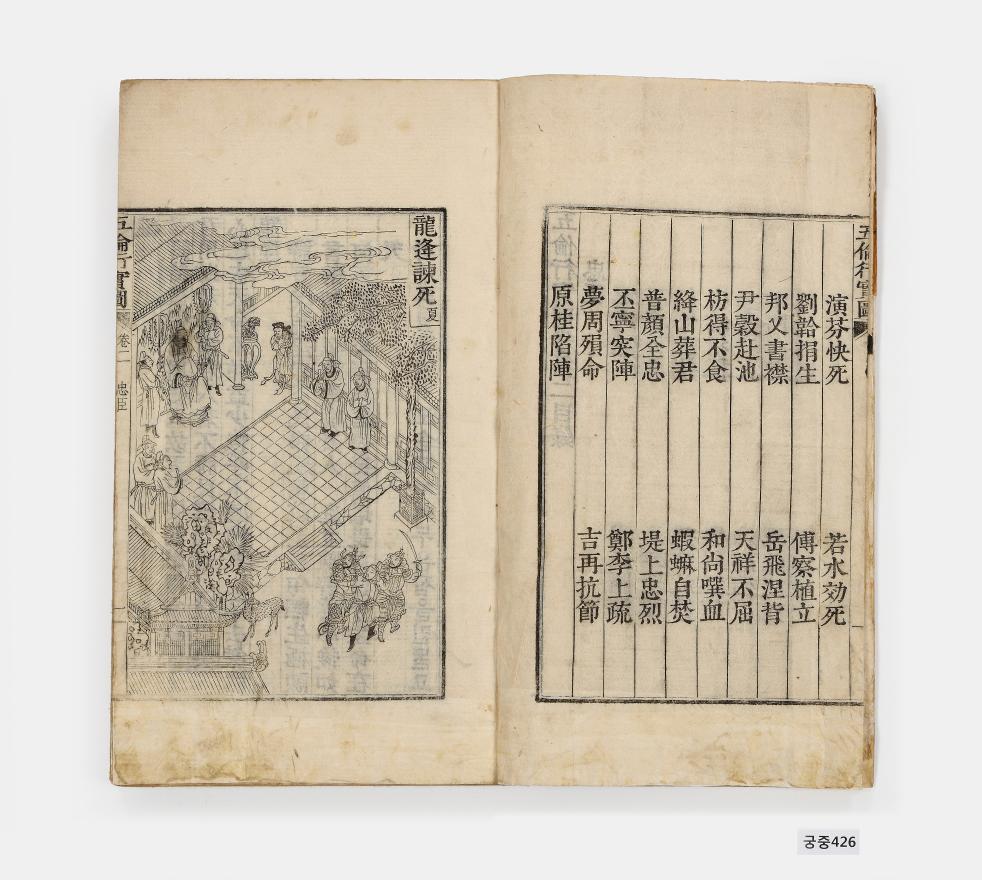 五倫行實圖
演芬快死 若水効死
劉韐捐生 傅察植立
邦乂書襟 岳飛涅背
尹穀赴池 天祥不屈
枋得不食 和尙噀血
絳山葬君 蝦蟆自焚
普顔全忠 堤上忠烈
丕寧突陣 鄭李上疏
夢周殞命 吉再抗節
原桂陷陣
龍逄諫死 夏
五倫行實圖 卷二 忠臣
궁중426